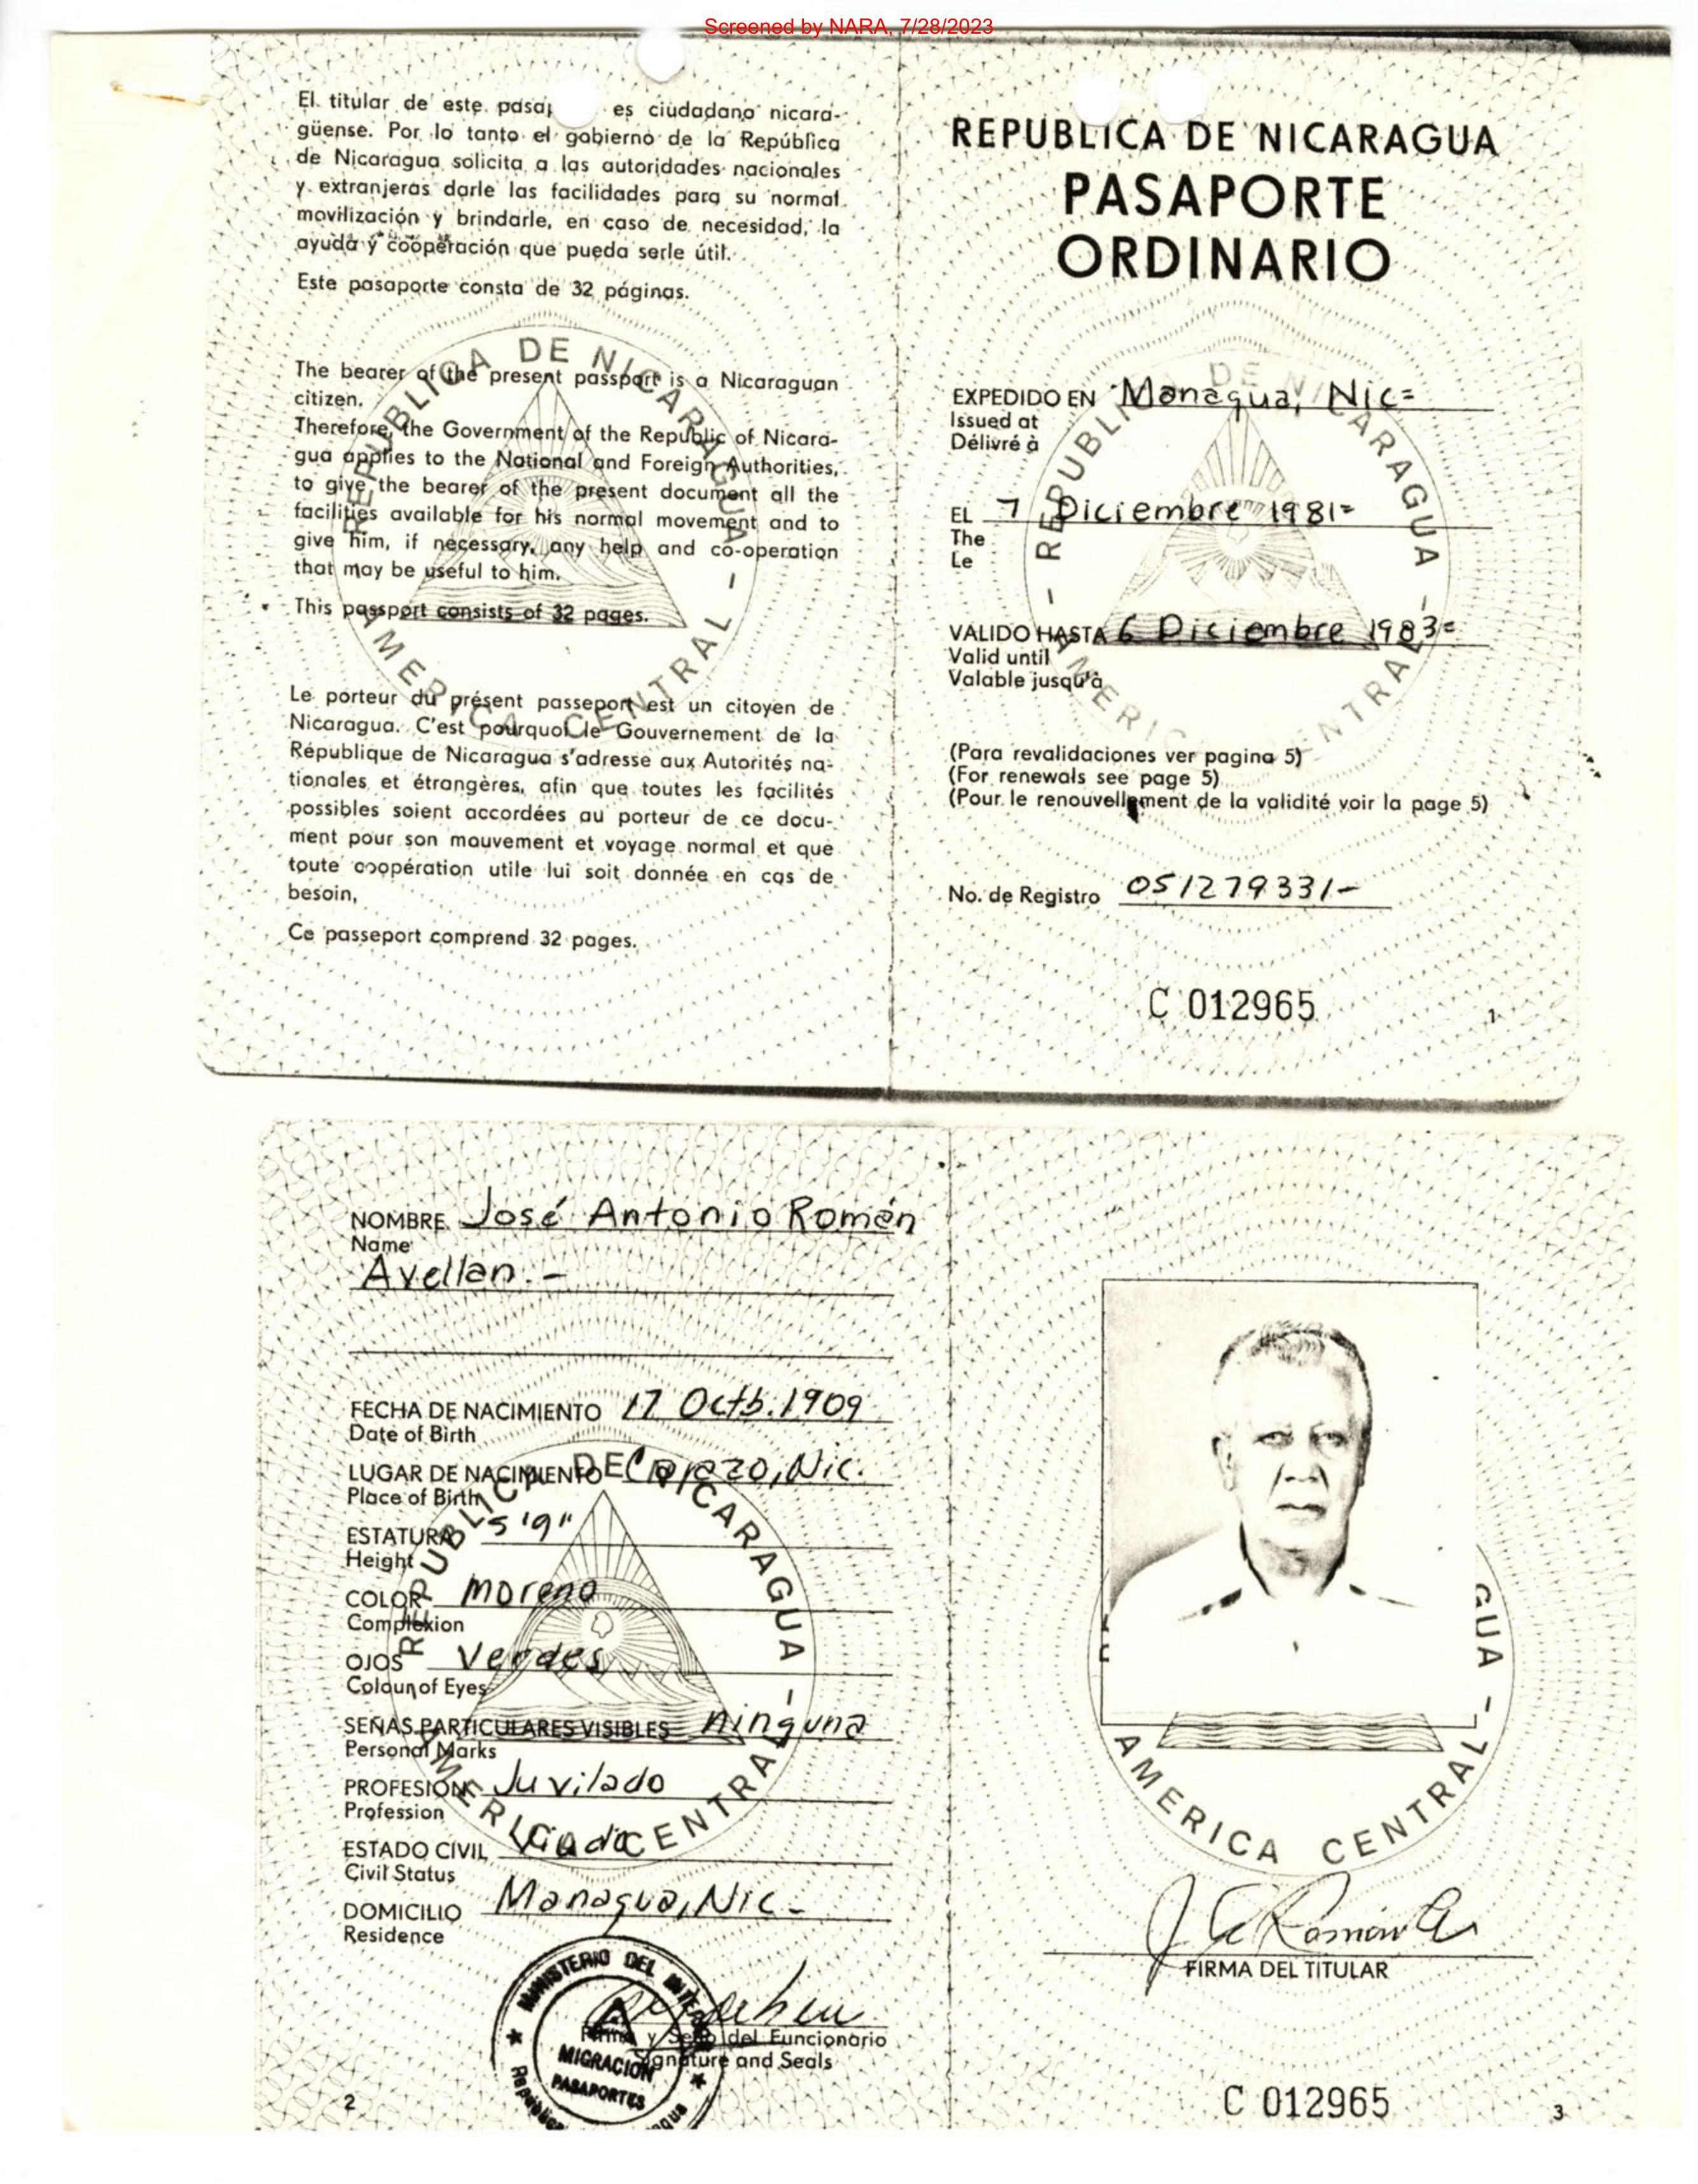 Screened by NARA, 7/28/2023
El titular de este es ciudadano nicara-
güense. Por lo tanto el gobierno de la República
de Nicaragua solicita a las autoridades nacionales
y extranjeras darle las facilidades para su normal
movilización y brindarle, en caso de necesidad, la
ayuda y cooperación que pueda serle útil.
Este pasaporte consta de 32 páginas.
The bearer of the present passport is a Nicaraguan
citizen.
Therefore, the Government of the Republic of Nicara-
gua applies to the National and Foreign Authorities,
to give the bearer of the present document all the
facilities available for his normal movement and to
give him, if necessary, any help and co-operation
that may be useful to him.
This passport consists of 32 pages.
Le porteur du présent passeport est un citoyen de
Nicaragua. C'est pourquoi le Gouvernement de la
République de Nicaragua s'adresse aux Autorités na-
tionales et étrangères, afin que toutes les facilités
possibles soient accordées au porteur de ce docu-
ment pour son mouvement et voyage normal et que
toute coopération utile lui soit donnée en cas de
besoin,
Ce passeport comprend 32 pages.
REPUBLICA DE NICARAGUA - AMERICA CENTRAL -
REPUBLICA DE NICARAGUA
PASAPORTE
ORDINARIO
EXPEDIDO EN Managua, Nic=
Issued at
Délivré à
EL 7 Diciembre 1981=
The
Le
VALIDO HASTA 6 Diciembre 1983=
Valid until
Valable jusqu'à
(Para revalidaciones ver pagina 5)
(For renewals see page 5)
(Pour le renouvellement de la validité voir la page 5)
No. de Registro 051279331-
C 012965
1
REPUBLICA DE NICARAGUA - AMERICA CENTRAL -
NOMBRE José Antonio Román
Name
Avellan.-
FECHA DE NACIMIENTO 17 Octb.1909
Date of Birth
LUGAR DE NACIMIENTO Carazo, Nic.
Place of Birth
ESTATURA 5'9"
Height
COLOR moreno
Complexion
OJOS Verdes
Colour of Eyes
SEÑAS PARTICULARES VISIBLES ninguna
Personal Marks
PROFESION Juvilado
Profession
ESTADO CIVIL Viudo
Civil Status
DOMICILIO Managua, Nic-
Residence
Firma y Sello del Funcionario
Signature and Seals
MINISTERIO DEL INTERIOR
MIGRACION
PASAPORTES
2
REPUBLICA DE NICARAGUA - AMERICA CENTRAL -
GUA - AMERICA CENTRAL
FIRMA DEL TITULAR
C 012965
3